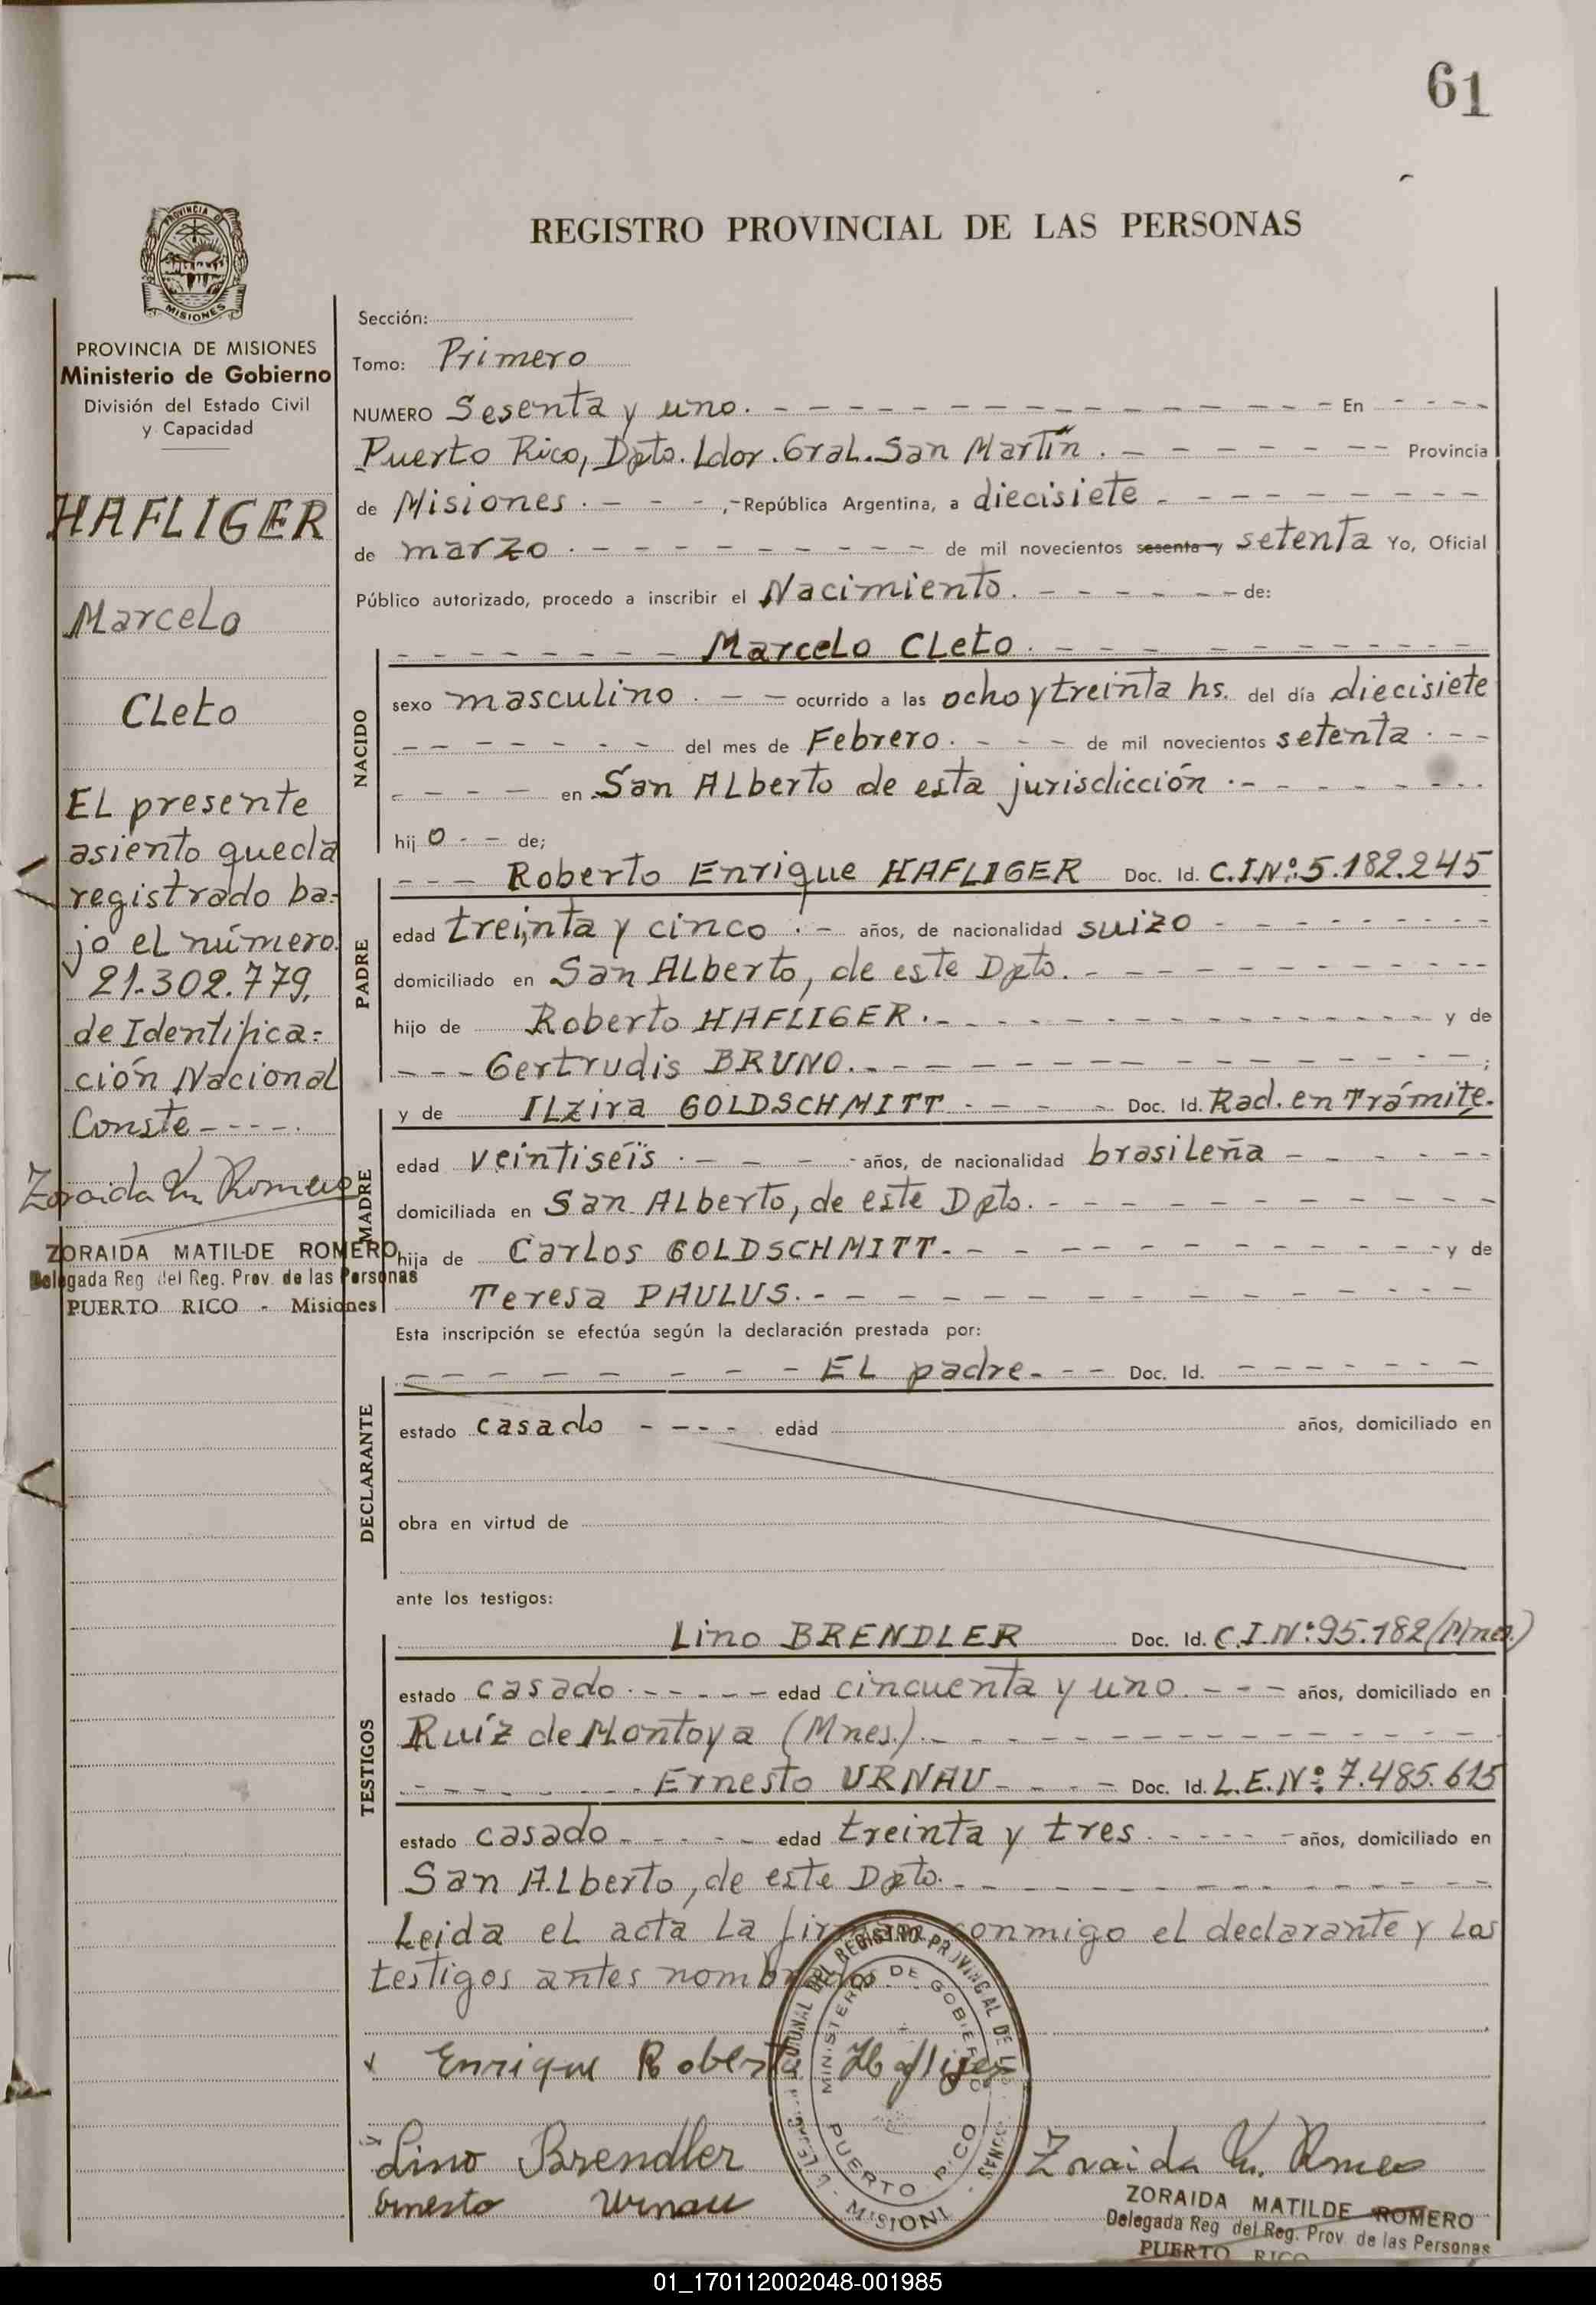 61
REGISTRO PROVINCIAL DE LAS PERSONAS
PROVINCIA DE MISIONES
Ministerio de Gobierno
División del Estado Civil
y Capacidad
HAFLIGER
Marcelo
Cleto
El presente
asiento queda
registrado ba-
jo el número
21.302.779,
de Identifica-
ción Nacional
Conste - - - - .
Zoraida M. Romero
ZORAIDA MATILDE ROMERO
Delegada Reg. del Reg. Prov. de las Personas
PUERTO RICO - Misiones
Sección:
Tomo: Primero
NUMERO Sesenta y uno. - - - En - - - -
Puerto Rico, Dpto. Ldor. Gral. San Martín . - - - Provincia
de Misiones . - - - , - República Argentina, a diecisiete - - -
de marzo . - - - de mil novecientos sesenta y setenta Yo, Oficial
Público autorizado, procedo a inscribir el Nacimiento. - - - de:
- - - Marcelo Cleto . - - -
NACIDO
sexo masculino . - - ocurrido a las ocho y treinta hs. del día diecisiete
- - - del mes de Febrero . - - - de mil novecientos setenta . - -
- - - - en San Alberto de esta jurisdicción . - - -
hijo - - de;
PADRE
- - - Roberto Enrique HAFLIGER Doc. Id. C.I.Nº: 5.182.245
edad treinta y cinco . - años, de nacionalidad suizo - - -
domiciliado en San Alberto, de este Dpto. - - -
hijo de Roberto HAFLIGER . - - - y de
- - - Gertrudis BRUNO. - - - ;
MADRE
y de Ilzira GOLDSCHMITT - - - Doc. Id. Rad. en Trámite.
edad veintiséis . - - - años, de nacionalidad brasileña - - -
domiciliada en San Alberto, de este Dpto. - - -
hija de Carlos GOLDSCHMITT. - - - y de
Teresa PAULUS. - - -
Esta inscripción se efectúa según la declaración prestada por:
DECLARANTE
- - - El padre. - - Doc. Id. - - -
estado casado - - - - edad años, domiciliado en
obra en virtud de
ante los testigos:
TESTIGOS
Lino BRENDLER Doc. Id. C.I.Nº: 95.182 (Mnes.)
estado casado . - - - edad cincuenta y uno. - - - años, domiciliado en
Ruíz de Montoya (Mnes.). - - -
- - - Ernesto URNAU - - - Doc. Id. L.E.Nº: 7.485.615
estado casado - - - edad treinta y tres . - - - años, domiciliado en
San Alberto, de este Dpto. - - -
Leida el acta la firman conmigo el declarante y los
testigos antes nombrados
Enrique Roberto Hafliger
Lino Brendler
Ernesto Urnau
Zoraida M. Romero
DEL REGISTRO PROVINCIAL DE
MINISTERIO DE GOBIERNO
PUERTO RICO
ZORAIDA MATILDE ROMERO
Delegada Reg. del Reg. Prov. de las Personas
PUERTO RICO
01_170112002048-001985